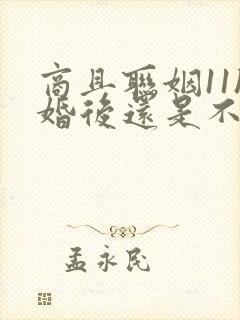 商且聯姻11
婚後還是不
孟永民